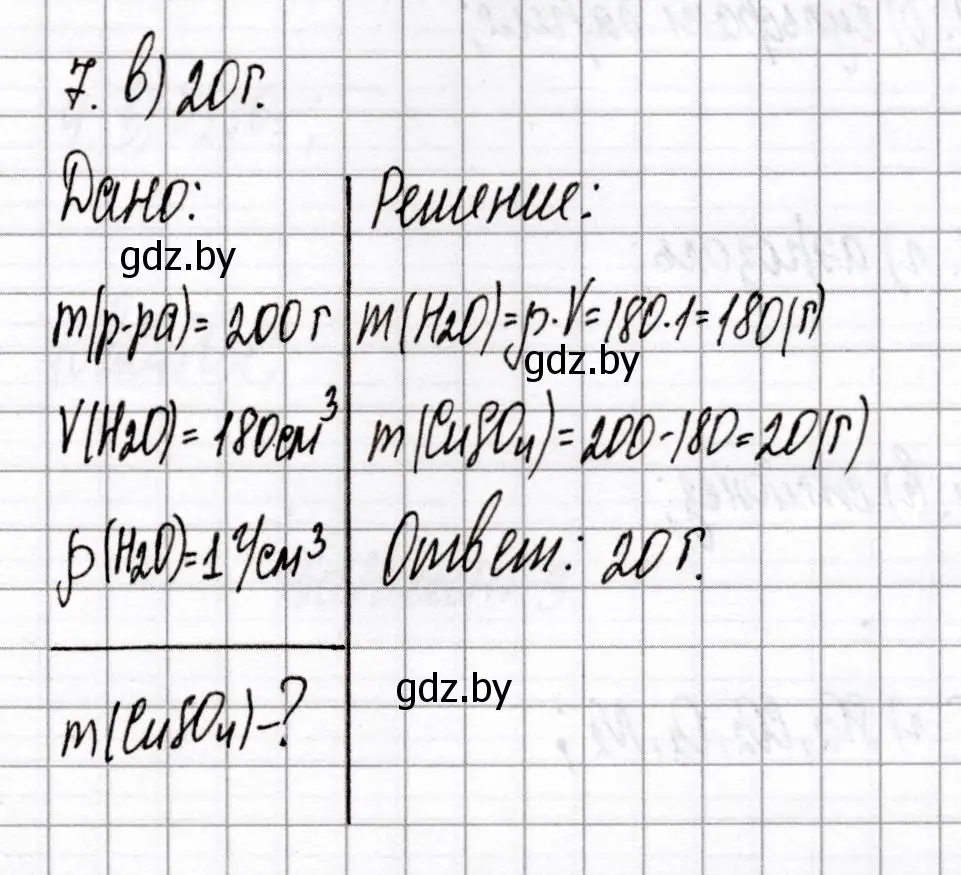 7. в) 20 г.
Дано:
gdz.by
m(р-ра) = 200 г
V(H2O) = 180 см³
ρ(H2O) = 1 г/см³
m(CuSO4) - ?
Решение:
m(H2O) = ρ·V = 180·1 = 180 (г)
gdz.by
m(CuSO4) = 200 - 180 = 20 (г)
Ответ: 20 г.
gdz.by